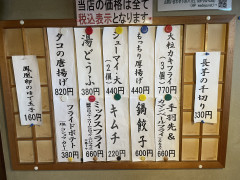 当店の価格は全て
税込表示となります。
長芋の千切り
330円
大粒カキフライ
(3個)
770円
もっちり厚揚げ
440円
シューマイ・大
(2個)
440円
湯どうふ
380円
タコの唐揚げ
820円
鳳凰卵の味付玉子
160円
手羽先&
660円
鍋餃子
600円
キムチ
220円
ミックスフライ
660円
フライドポテト
380円